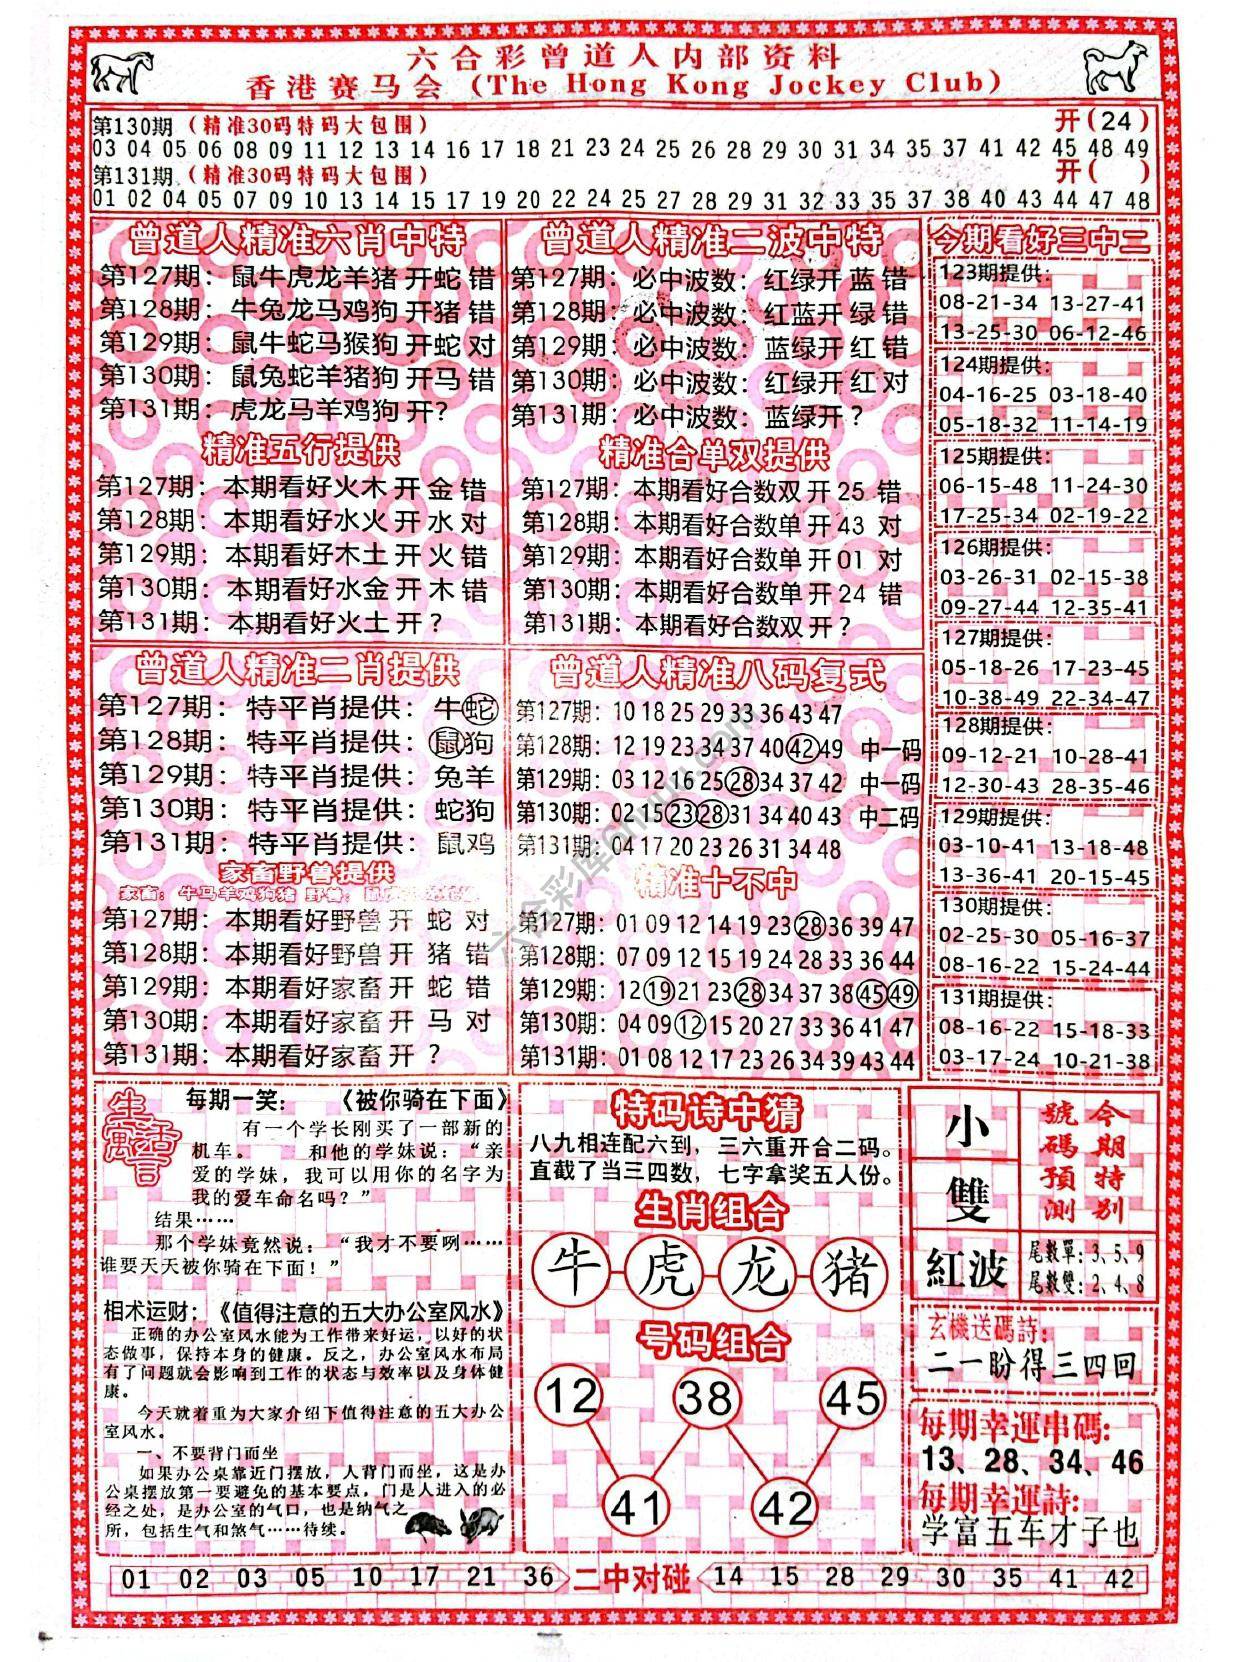 六合彩曾道人内部资料
香港赛马会（The Hong Kong Jockey Club）
第130期（精准30码特码大包围） 开(24)
03 04 05 06 08 09 11 12 13 14 16 17 18 21 23 24 25 26 28 29 30 31 34 35 37 41 42 45 48 49
第131期（精准30码特码大包围） 开( )
01 02 04 05 07 09 10 13 14 15 17 19 20 22 24 25 27 28 29 31 32 33 35 37 38 40 43 44 47 48
曾道人精准六肖中特
第127期：鼠牛虎龙羊猪开蛇错
第128期：牛兔龙马鸡狗开猪错
第129期：鼠牛蛇马猴狗开蛇对
第130期：鼠兔蛇羊猪狗开马错
第131期：虎龙马羊鸡狗开？
精准五行提供
第127期：本期看好火木开金错
第128期：本期看好水火开水对
第129期：本期看好木土开火错
第130期：本期看好水金开木错
第131期：本期看好火土开？
曾道人精准二波中特
第127期：必中波数：红绿开蓝错
第128期：必中波数：红蓝开绿错
第129期：必中波数：蓝绿开红错
第130期：必中波数：红绿开红对
第131期：必中波数：蓝绿开？
精准合单双提供
第127期：本期看好合数双开25 错
第128期：本期看好合数单开43 对
第129期：本期看好合数单开01 对
第130期：本期看好合数单开24 错
第131期：本期看好合数双开？
今期看好三中二
123期提供：
08-21-34 13-27-41
13-25-30 06-12-46
124期提供：
04-16-25 03-18-40
05-18-32 11-14-19
125期提供：
06-15-48 11-24-30
17-25-34 02-19-22
126期提供：
03-26-31 02-15-38
09-27-44 12-35-41
127期提供：
05-18-26 17-23-45
10-38-49 22-34-47
128期提供：
09-12-21 10-28-41
12-30-43 28-35-46
129期提供：
03-10-41 13-18-48
13-36-41 20-15-45
130期提供：
02-25-30 05-16-37
08-16-22 15-24-44
131期提供：
08-16-22 15-18-33
03-17-24 10-21-38
曾道人精准二肖提供
第127期：特平肖提供：牛蛇
第128期：特平肖提供：鼠狗
第129期：特平肖提供：兔羊
第130期：特平肖提供：蛇狗
第131期：特平肖提供：鼠鸡
家畜野兽提供
家畜：牛马羊鸡狗猪 野兽：鼠
第127期：本期看好野兽开 蛇 对
第128期：本期看好野兽开 猪 错
第129期：本期看好家畜开 蛇 错
第130期：本期看好家畜开 马 对
第131期：本期看好家畜开 ？
曾道人精准八码复式
第127期：10 18 25 29 33 36 43 47
第128期：12 19 23 34 37 40 42 49 中一码
第129期：03 12 16 25 28 34 37 42 中一码
第130期：02 15 23 28 31 34 40 43 中二码
第131期：04 17 20 23 26 31 34 48
精准十不中
第127期：01 09 12 14 19 23 28 36 39 47
第128期：07 09 12 15 19 24 28 33 36 44
第129期：12 19 21 23 28 34 37 38 45 49
第130期：04 09 12 15 20 27 33 36 41 47
第131期：01 08 12 17 23 26 34 39 43 44
生活寓言
每期一笑：《被你骑在下面》
有一个学长刚买了一部新的
机车。 和他的学妹说：“亲
爱的学妹，我可以用你的名字为
我的爱车命名吗？”
结果……
那个学妹竟然说：“我才不要咧……
谁要天天被你骑在下面！”
相术运财：《值得注意的五大办公室风水》
正确的办公室风水能为工作带来好运，以好的状
态做事，保持本身的健康。反之，办公室风水布局
有了问题就会影响到工作的状态与效率以及身体健
康。
今天就着重为大家介绍下值得注意的五大办公
室风水。
一、不要背门而坐
如果办公桌靠近门摆放，人背门而坐，这是办
公桌摆放第一要避免的基本要点，门是人进入的必
经之处，是办公室的气口，也是纳气之
所，包括生气和煞气……待续。
特码诗中猜
八九相连配六到，三六重开合二码。
直截了当三四数，七字拿奖五人份。
生肖组合
牛 虎 龙 猪
号码组合
12 38 45
41 42
小
雙
紅波
今期特别
號碼預测
尾數單：3、5、9
尾數雙：2、4、8
玄機送碼詩：
二一盼得三四回
每期幸運串碼：
13、28、34、46
每期幸運詩：
学富五车才子也
01 02 03 05 10 17 21 36 二中对碰 14 15 28 29 30 35 41 42